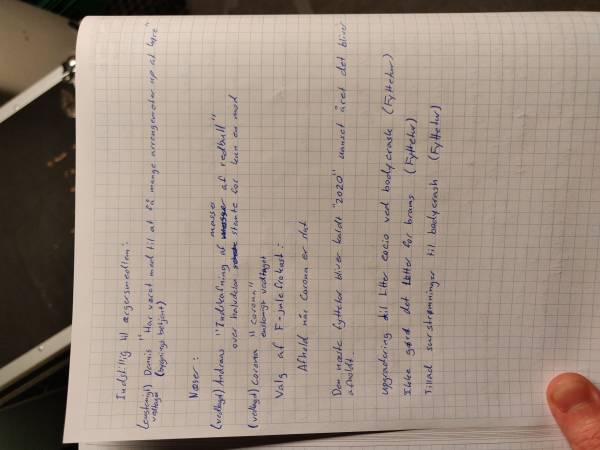 Indstillig til ærgersmedlem:
(enstemigt vedtaget) Dennis "Har været med til at få mange arrangementer op at køre"
(bygnings betjent)
Næser:
(vedtagt) Andreas "Indskafning af masser af redbull"
over halvdelen stemte for kun en mod
(vedtagt) Corona "Corona"
enstemigt vedtaget
Valg af F-julefrokost:
Afhold når Corona er slut
Den næste fyttetur bliver kaldt "2020" uanset året det bliver
afholdt.
upgradering til liter cocio ved bodycrash (Fyttetur)
Ikke gørd det letter for brams (Fyttetur)
Tillad sur strømninger til bodycrash (Fyttetur)